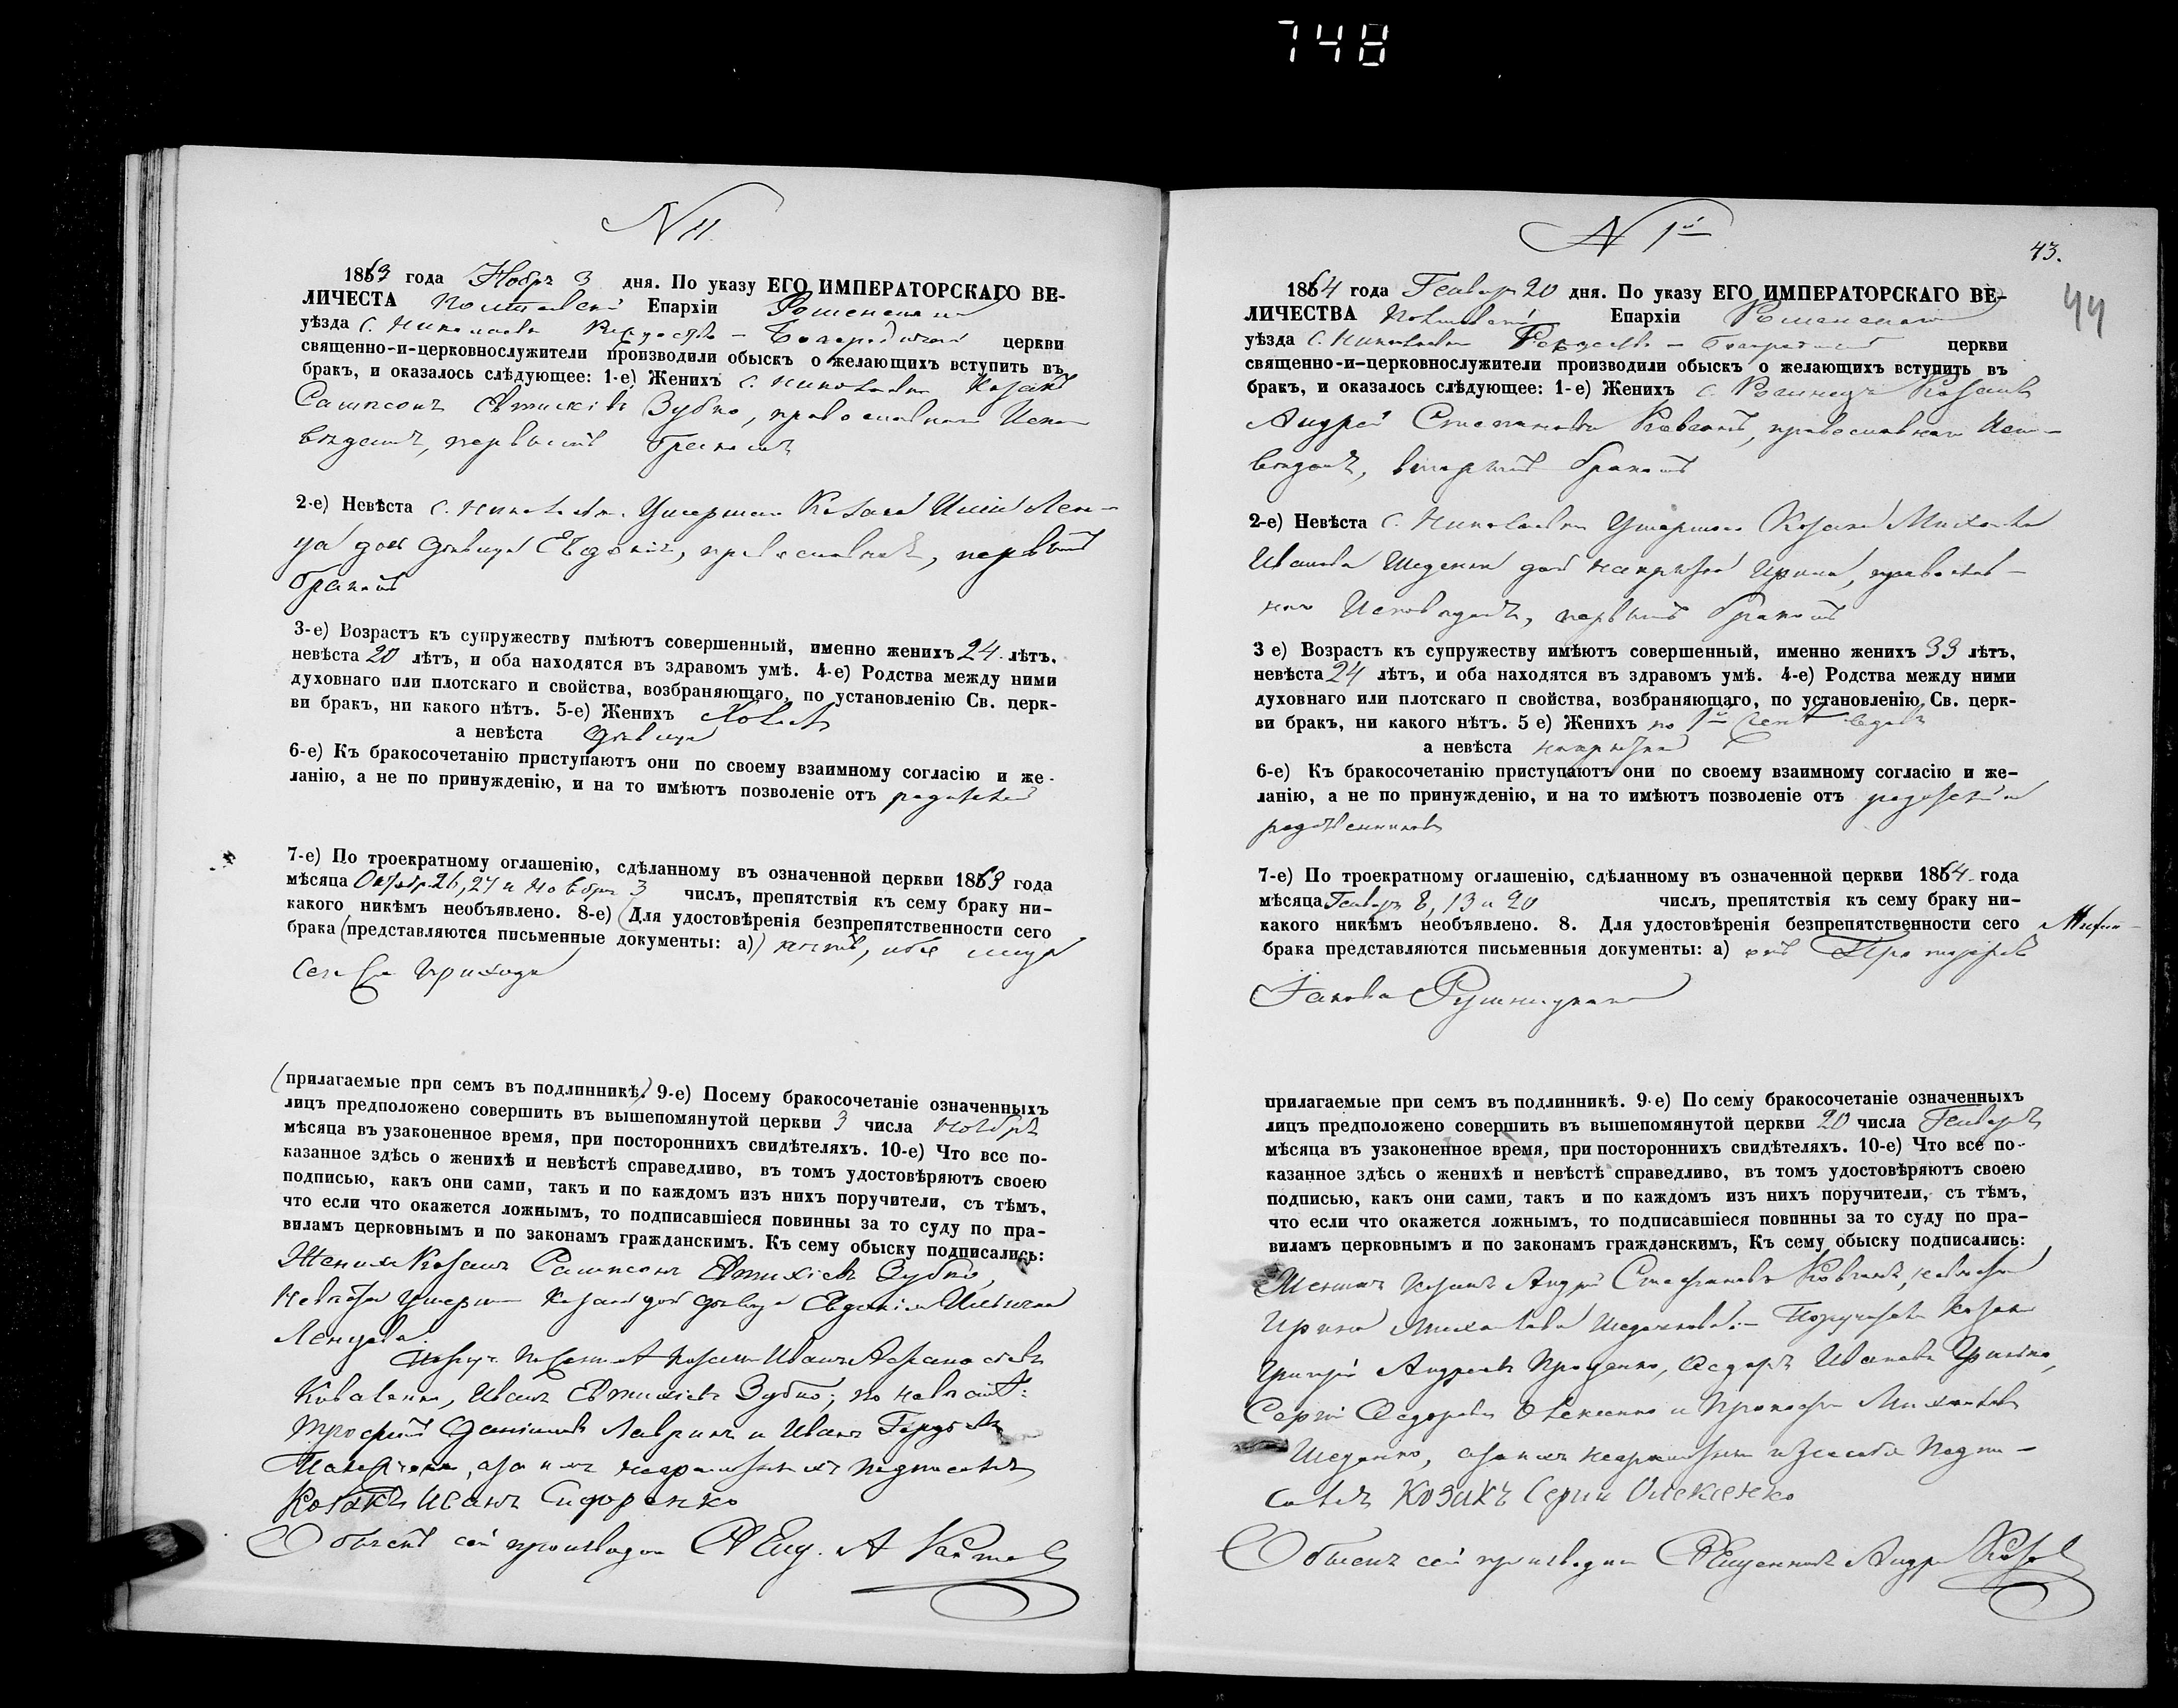 748
N 11
1863 года Ноябр 3 дня. По указу ЕГО ИМПЕРАТОРСКАГО ВЕ-
ЛИЧЕСТА Полтавской Епархіи Роменскаго
уѣзда С. Николаевки Рождество-Богородичной церкви
священно-и-церковнослужители производили обыскъ о желающихъ вступить въ
бракъ, и оказалось слѣдующее: 1-е) Женихъ с. Николаевки Козакъ
Сампсонъ Евтихіевъ Зубко, православнаго Испо
вѣданія, первымъ бракомъ
2-е) Невѣста С. Николаевки Умершаго Козака Иліи
дочь дѣвица Евдокія, православная, первымъ
бракомъ
3-е) Возрастъ къ супружеству имѣютъ совершенный, именно женихъ 24 лѣтъ,
невѣста 20 лѣтъ, и оба находятся въ здравомъ умѣ. 4-е) Родства между ними
духовнаго или плотскаго и свойства, возбраняющаго, по установленію Св. церк-
ви бракъ, ни какого нѣтъ. 5-е) Женихъ Холостъ
а невѣста Дѣвица
6-е) Къ бракосочетанію приступаютъ они по своему взаимному согласію и же-
ланію, а не по принужденію, и на то имѣютъ позволеніе отъ родителей
7-е) По троекратному оглашенію, сдѣланному въ означенной церкви 1863 года
мѣсяца Октяб. 26, 27 и Ноября 3 числъ, препятствія къ сему браку ни-
какого никѣмъ необъявлено. 8-е) (Для удостовѣренія безпрепятственности сего
брака (представляются письменные документы: а)) нѣтъ, обе лица
сего прихода
(прилагаемые при семъ въ подлинникѣ.) 9-е) Посему бракосочетаніе означенныхъ
лицъ предположено совершить въ вышепомянутой церкви 3 числа Ноября
мѣсяца въ узаконенное время, при постороннихъ свидѣтеляхъ. 10-е) Что все по-
казанное здѣсь о женихѣ и невѣстѣ справедливо, въ томъ удостовѣряютъ своею
подписью, какъ они сами, такъ и по каждомъ изъ нихъ поручители, съ тѣмъ,
что если что окажется ложнымъ, то подписавшіеся повинны за то суду по пра-
виламъ церковнымъ и по законамъ гражданскимъ. Къ сему обыску подписались:
Женихъ Козакъ Сампсонъ Евтихіевъ Зубко,
Невѣста умерш козака дочь дѣвица Евдокія
Козакъ Иванъ
Коваленко, Иванъ Евтихіевъ Зубко; по невѣстѣ:
Трофимъ Даніиловъ Лавринъ и Иванъ
а за нихъ неграмотныхъ подписался
Козакъ Иванъ Сидоренко
Обыскъ сей производилъ Свящ. А
N 1й
43.
44
1864 года Генваря 20 дня. По указу ЕГО ИМПЕРАТОРСКАГО ВЕ-
ЛИЧЕСТВА Полтавской Епархіи Роменскаго
уѣзда С. Николаевки Рождество-Богородичной церкви
священно-и-церковнослужители производили обыскъ о желающихъ вступить въ
бракъ, и оказалось слѣдующее: 1-е) Женихъ с. Козакъ
Андрей Стефановъ православнаго Испо-
вѣданія, вторымъ бракомъ
2-е) Невѣста С. Николаевки Умершаго Козака Михаила
Иванова Шеденка дочь Ирина, православ-
наго Исповѣданія, первымъ бракомъ
3 е) Возрастъ къ супружеству имѣютъ совершенный, именно женихъ 33 лѣтъ,
невѣста 24 лѣтъ, и оба находятся въ здравомъ умѣ. 4-е) Родства между ними
духовнаго или плотскаго и свойства, возбраняющаго, по установленію Св. церк-
ви бракъ, ни какого нѣтъ. 5 е) Женихъ по 1й вдовъ
а невѣста
6-е) Къ бракосочетанію приступаютъ они по своему взаимному согласію и же-
ланію, а не по принужденію, и на то имѣютъ позволеніе отъ
родственниковъ
7-е) По троекратному оглашенію, сдѣланному въ означенной церкви 1864 года
мѣсяца Генваря 8, 13 и 20 числъ, препятствія къ сему браку ни-
какого никѣмъ необъявлено. 8. Для удостовѣренія безпрепятственности сего
брака представляются письменныя документы: а) отъ
Іакова
прилагаемые при семъ въ подлинникѣ. 9-е) По сему бракосочетаніе означенныхъ
лицъ предположено совершить въ вышепомянутой церкви 20 числа Генваря
мѣсяца въ узаконенное время, при постороннихъ свидѣтеляхъ. 10-е) Что все по-
казанное здѣсь о женихѣ и невѣстѣ справедливо, въ томъ удостовѣряютъ своею
подписью, какъ они сами, такъ и по каждомъ изъ нихъ поручители, съ тѣмъ,
что если что окажется ложнымъ, то подписавшіеся повинны за то суду по пра-
виламъ церковнымъ и по законамъ гражданскимъ, Къ сему обыску подписались:
Женихъ козакъ Андрей Стефановъ невѣста
Ирина Михайлова
Григорій Андреевъ Проценко, Федоръ Ивановъ
Сергій Федоровъ Олексенко и Прокофій Михайловъ
Шеденко, а за нихъ неграмотныхъ и за себя Подпи-
сался Козакъ Сергій Олексенко
Обыскъ сей производилъ Священникъ Андрей